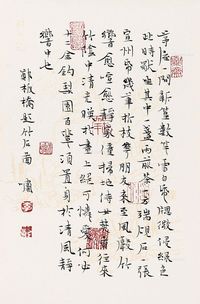 茅屋一間新篁數竿雪白紙窗微浸綠色
此時獨坐其中一盞雨前茶一方端硯石一張
宣州紙幾筆折枝花朋友來至風聲竹
響愈喧愈靜家僮掃地侍女焚香往來
竹陰中清光映於畫上絕可憐愛何必
十二金釵梨園百輩須置身於清風靜
響中也
鄭板橋題竹石畫 嘯